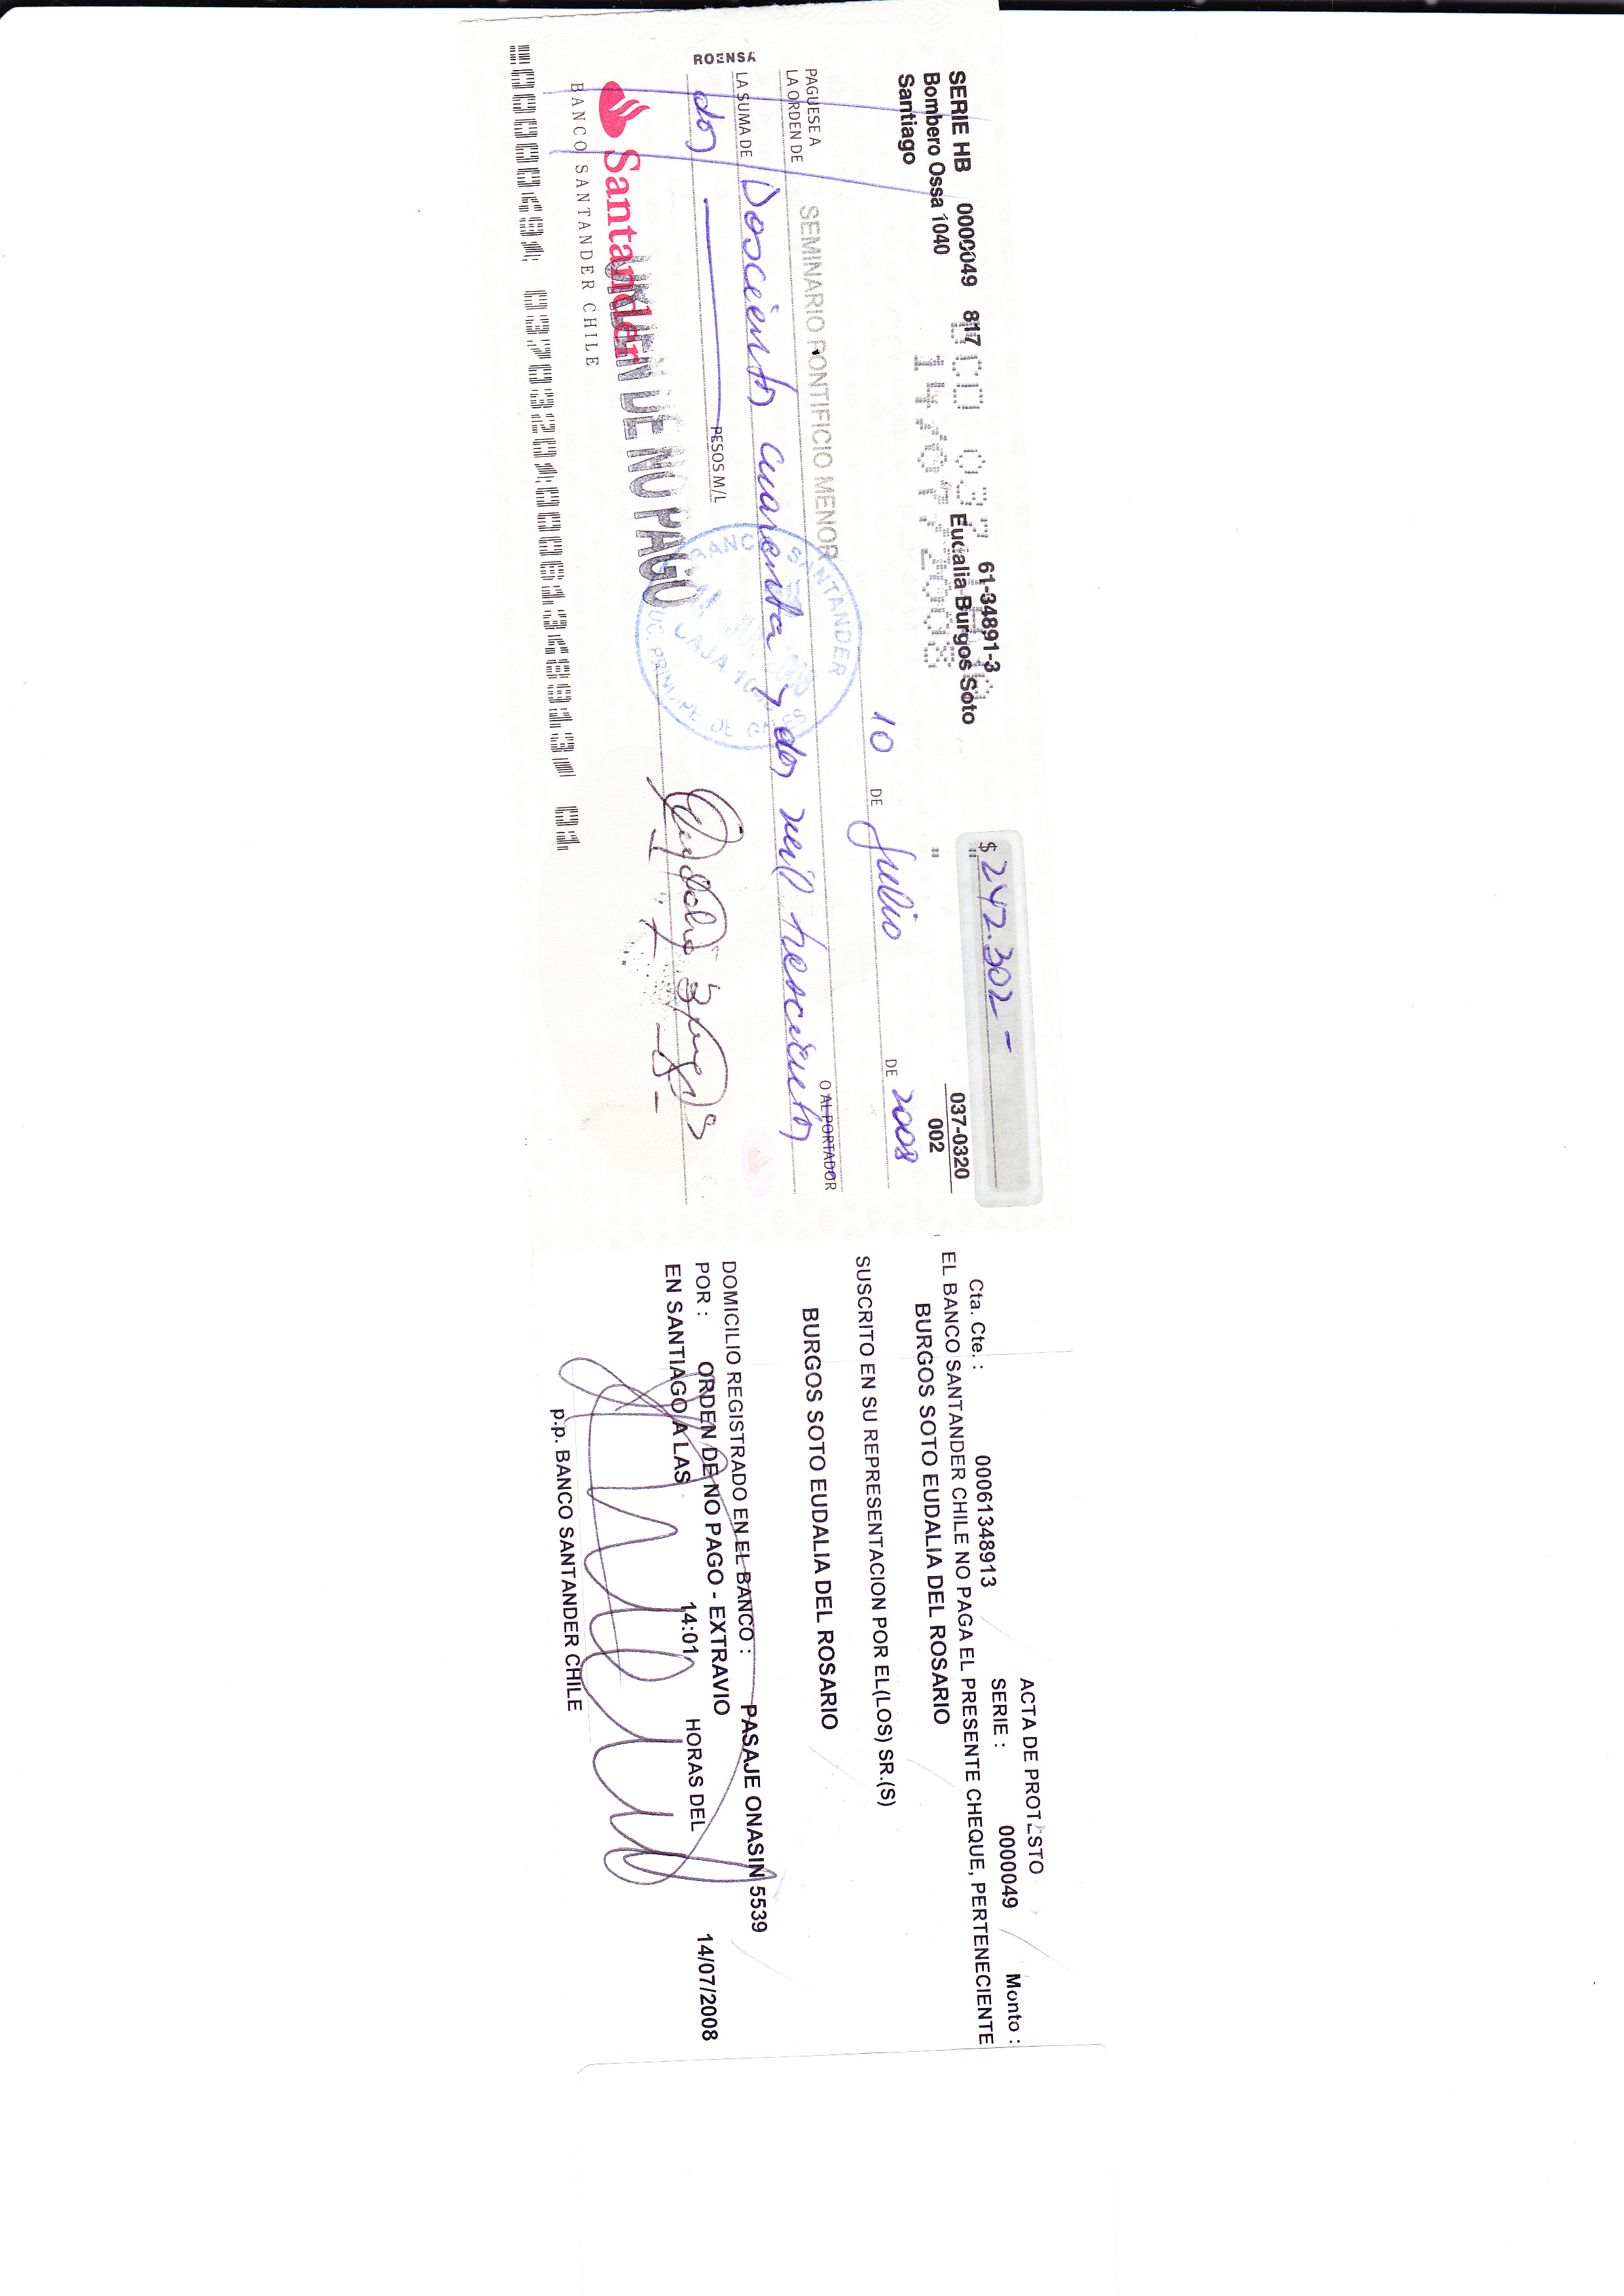 SERIE HB 0000049 817 61-34891-3 $ 242.302-
Bombero Ossa 1040 Eudalia Burgos Soto 037-0320
Santiago 002
10 DE Julio DE 2008
PAGUESE A
LA ORDEN DE SEMINARIO PONTIFICIO MENOR O AL PORTADOR
LA SUMA DE Doscientos cuarenta y dos mil trescientos
dos PESOS M/L
ROENSA
BANCO SANTANDER
CAJA
SUC. PRINCIPE DE GALES
ORDEN DE NO PAGO
Santander
BANCO SANTANDER CHILE
ACTA DE PROTESTO
Cta. Cte. : 00061348913 SERIE : 0000049 Monto :
EL BANCO SANTANDER CHILE NO PAGA EL PRESENTE CHEQUE, PERTENECIENTE
BURGOS SOTO EUDALIA DEL ROSARIO
SUSCRITO EN SU REPRESENTACION POR EL(LOS) SR.(S)
BURGOS SOTO EUDALIA DEL ROSARIO
DOMICILIO REGISTRADO EN EL BANCO : PASAJE ONASIN 5539
POR : ORDEN DE NO PAGO - EXTRAVIO
EN SANTIAGO A LAS 14:01 HORAS DEL 14/07/2008
p.p. BANCO SANTANDER CHILE